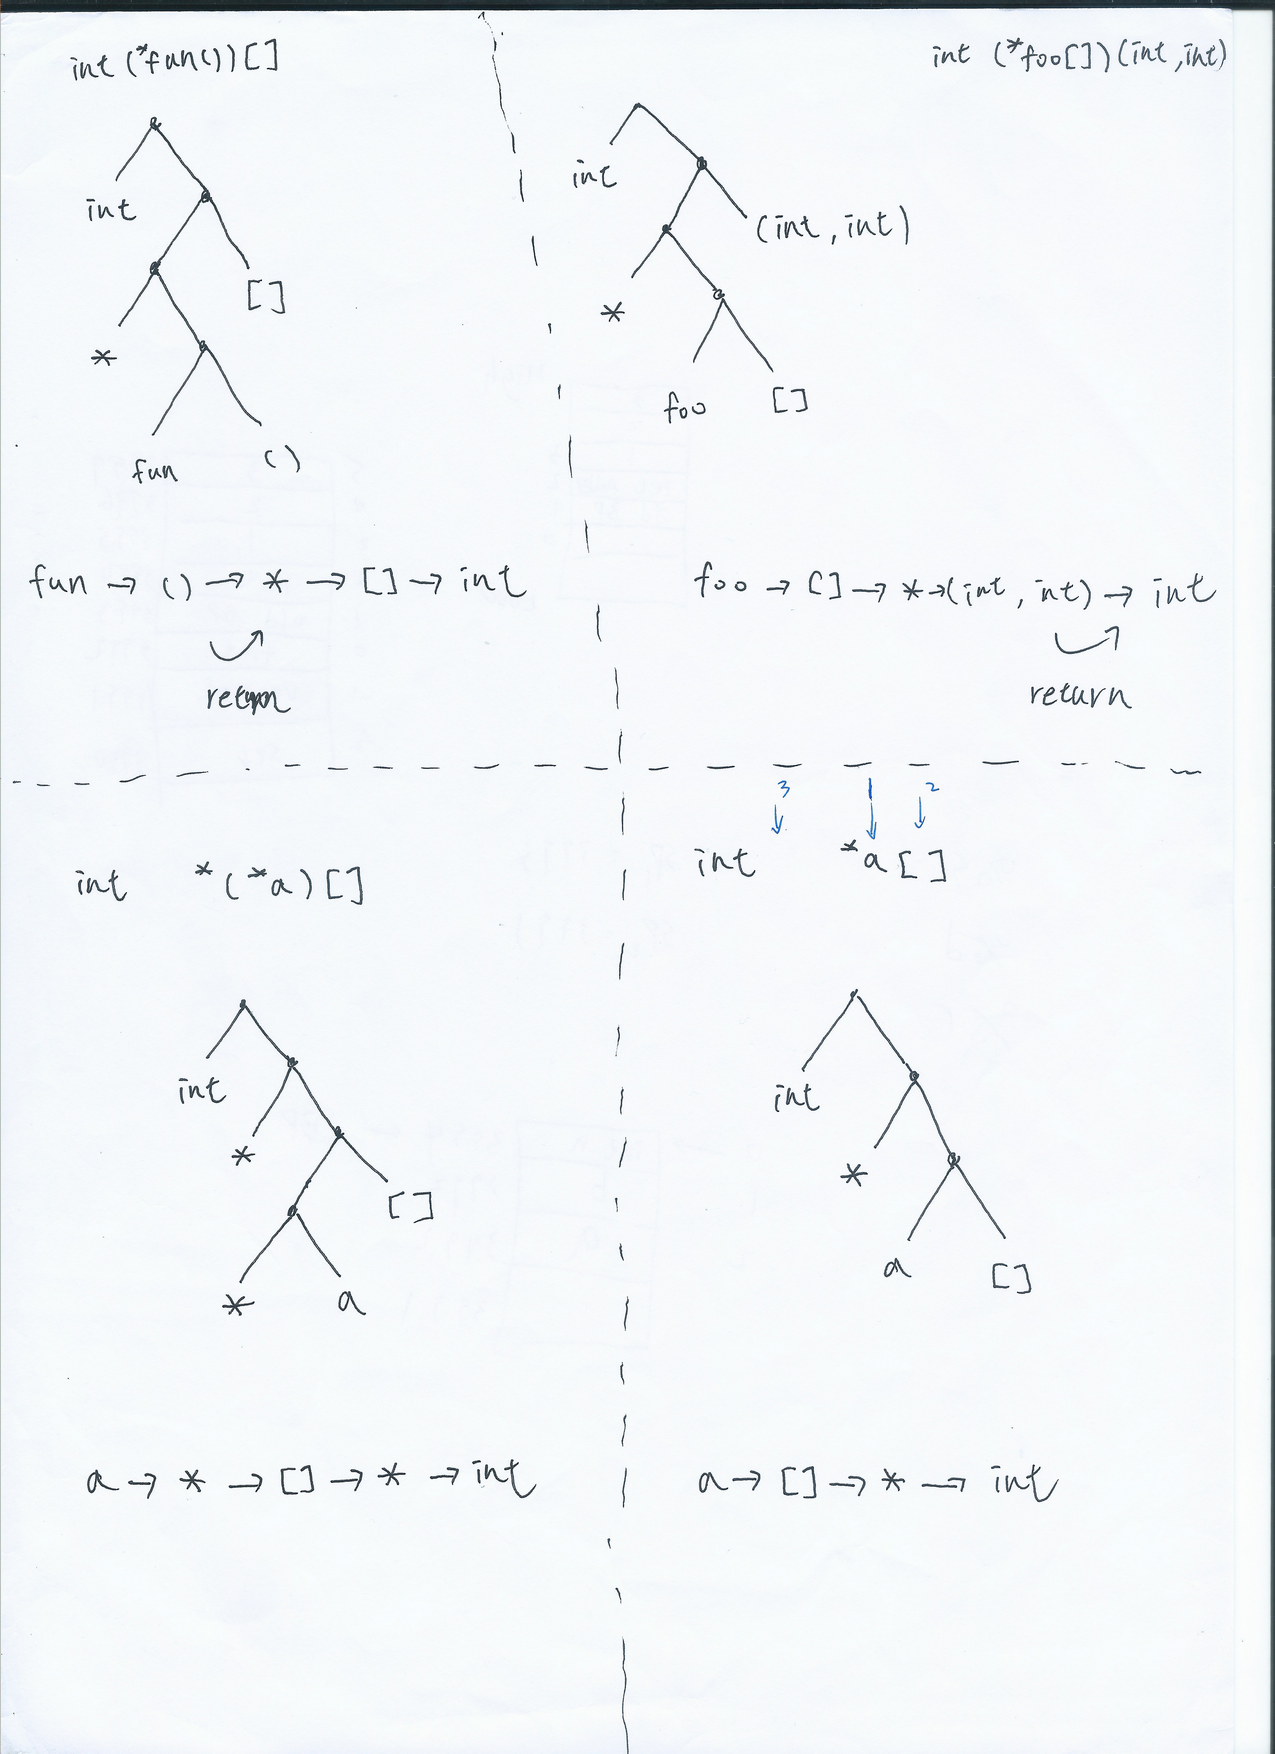 int (*fun())[]
int
[]
*
fun
()
fun → () → * → [] → int
return
int (*foo[])(int,int)
int
(int, int)
*
foo
[]
foo → [] → * → (int, int) → int
return
int *(*a)[]
int
*
[]
*
a
a → * → [] → * → int
3 1 2
int *a[]
int
*
a
[]
a → [] → * → int